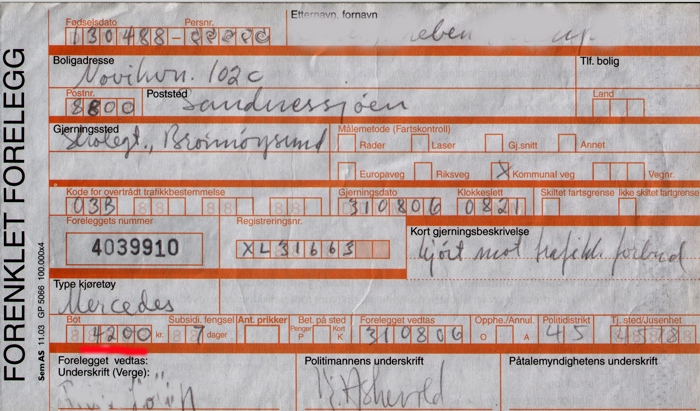 FORENKLET FORELEGG
Sem AS 11.03 GP 5066 100.000x4
Fødselsdato Persnr. Etternavn, fornavn
130488-
Boligadresse Tlf. bolig
102c
Postnr. Poststed Land
8800 Sandnessjøen
Gjerningssted Målemetode (Fartskontroll)
Brønnøysund Radar Laser Gj.snitt Annet
Europaveg Riksveg X Kommunal veg Vegnr.
Kode for overtrådt trafikkbestemmelse Gjerningsdato Klokkeslett Skiltet fartsgrense Ikke skiltet fartsgrense
03B 310806 0821
Foreleggets nummer Registreringsnr. Kort gjerningsbeskrivelse
4039910 XL31663 kjørt mot trafikk forbud
Type kjøretøy
Mercedes
Bot Subsidi. fengsel Ant. prikker Bet. på sted Forelegget vedtas Opphe./Annul. Politidistrikt Tj. sted/Jusenhet
4200 kr. 7 dager Penger P Kort K 310806 O A 45 4518
Forelegget vedtas: Politimannens underskrift Påtalemyndighetens underskrift
Underskrift (Verge):